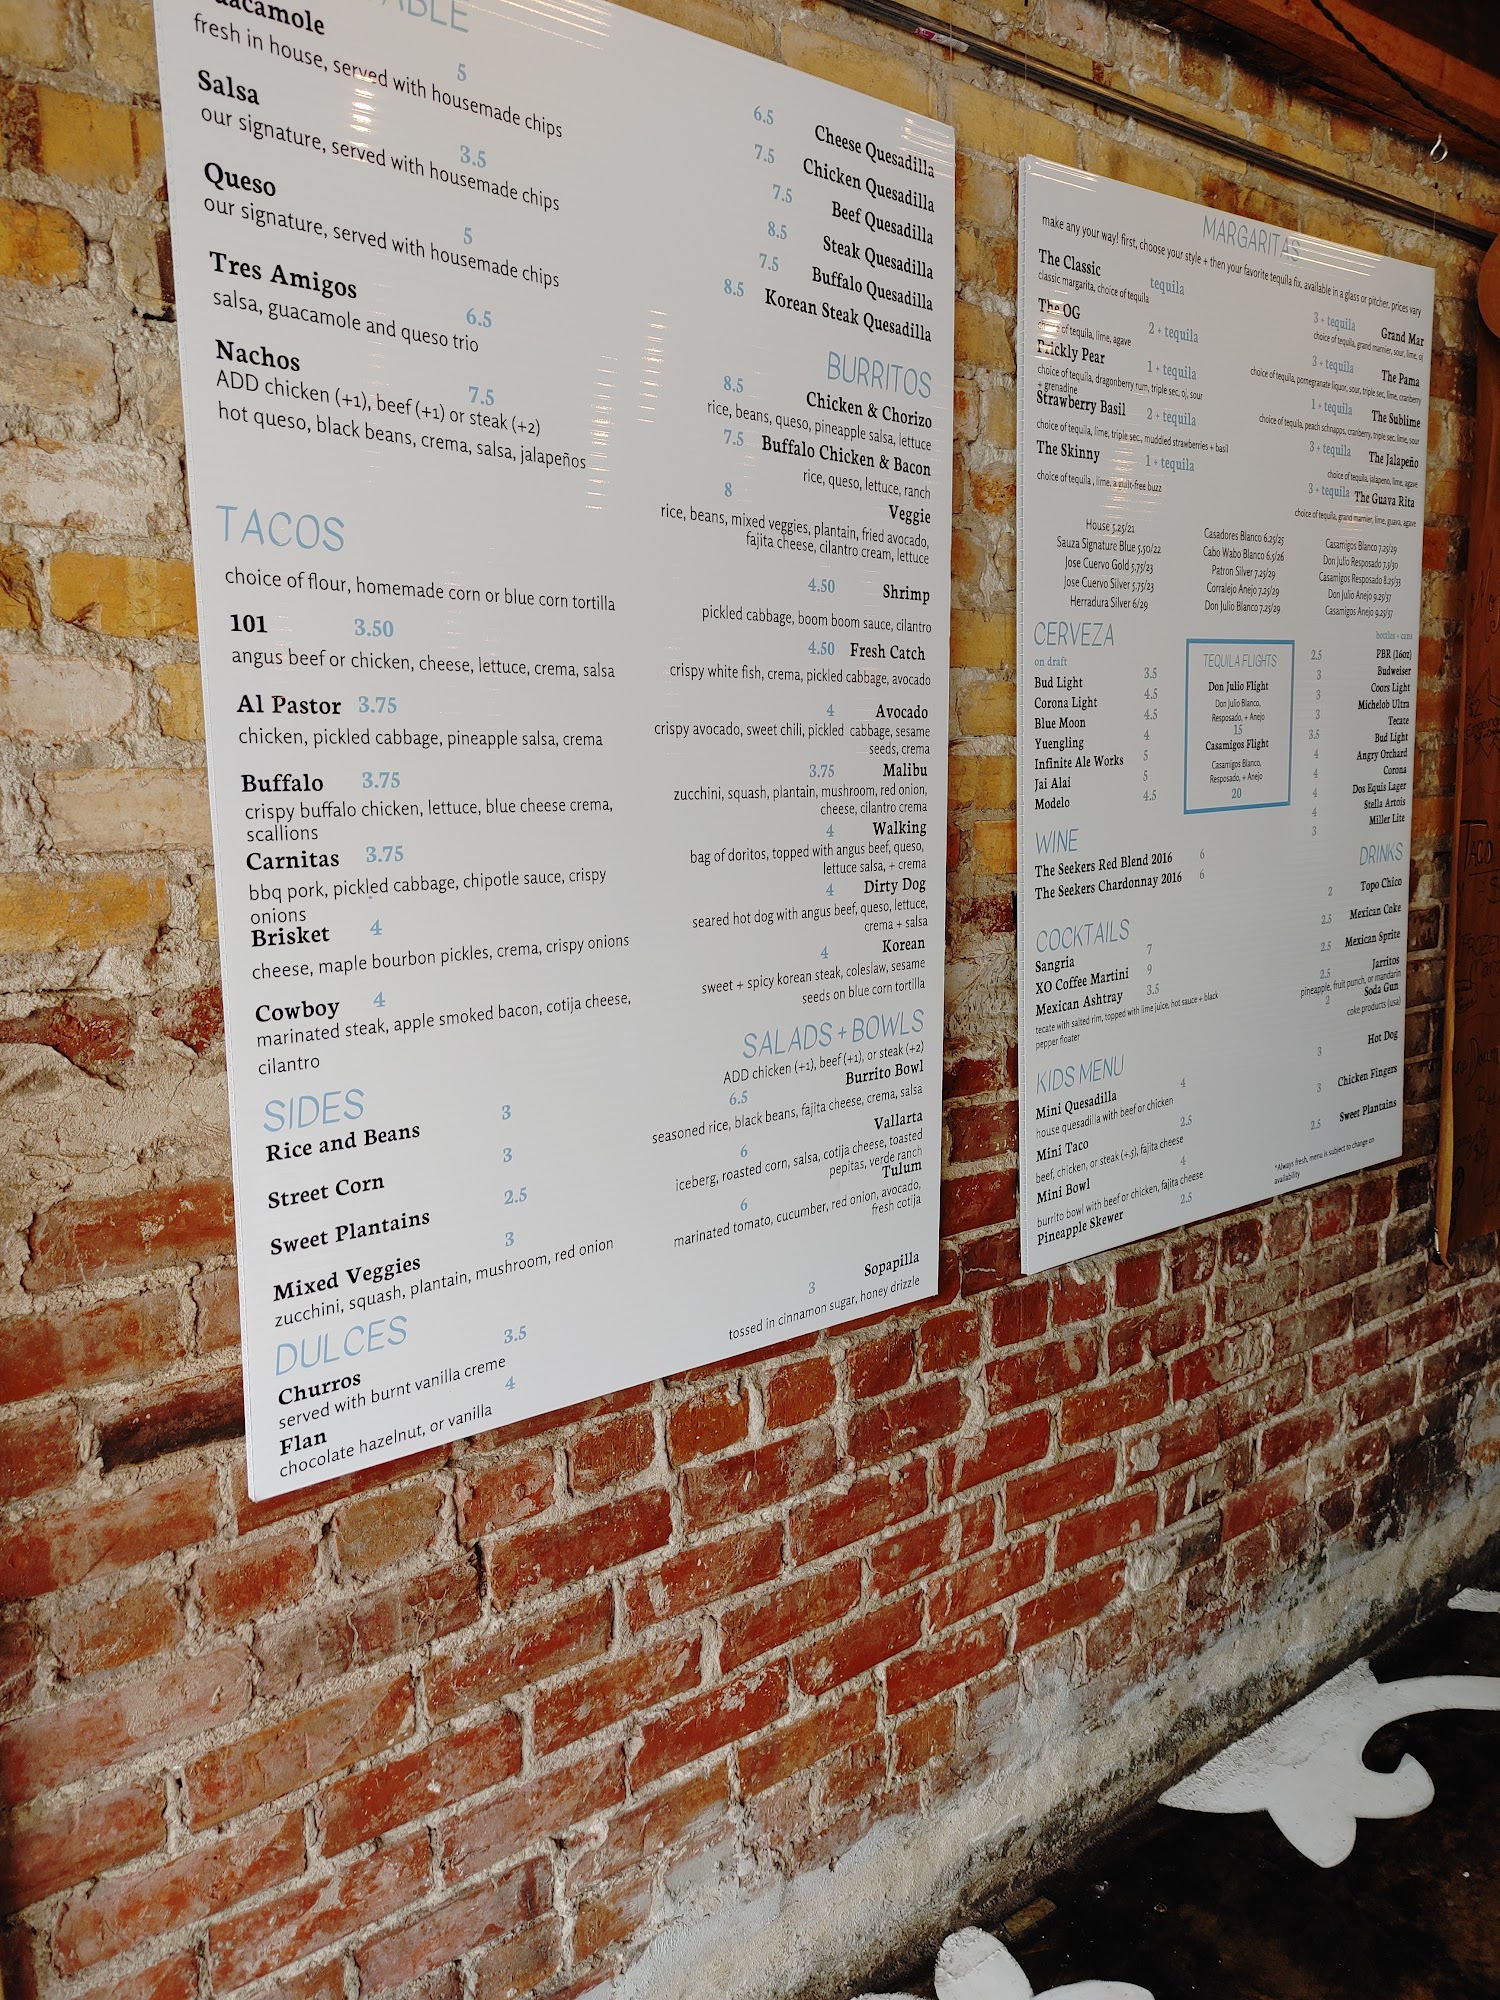 fresh in house, served with housemade chips
5
Salsa
our signature, served with housemade chips
3.5
Queso
our signature, served with housemade chips
5
Tres Amigos
salsa, guacamole and queso trio
6.5
Nachos
7.5
ADD chicken (+1), beef (+1) or steak (+2)
hot queso, black beans, crema, salsa, jalapeños
TACOS
choice of flour, homemade corn or blue corn tortilla
101 3.50
angus beef or chicken, cheese, lettuce, crema, salsa
Al Pastor 3.75
chicken, pickled cabbage, pineapple salsa, crema
Buffalo 3.75
crispy buffalo chicken, lettuce, blue cheese crema,
scallions
Carnitas 3.75
bbq pork, pickled cabbage, chipotle sauce, crispy
onions
Brisket 4
cheese, maple bourbon pickles, crema, crispy onions
Cowboy 4
marinated steak, apple smoked bacon, cotija cheese,
cilantro
SIDES
Rice and Beans 3
Street Corn 3
Sweet Plantains 2.5
Mixed Veggies 3
zucchini, squash, plantain, mushroom, red onion
DULCES
Churros 3.5
served with burnt vanilla creme
Flan 4
chocolate hazelnut, or vanilla
6.5 Cheese Quesadilla
7.5 Chicken Quesadilla
7.5 Beef Quesadilla
8.5 Steak Quesadilla
7.5 Buffalo Quesadilla
8.5 Korean Steak Quesadilla
BURRITOS
8.5 Chicken & Chorizo
rice, beans, queso, pineapple salsa, lettuce
7.5 Buffalo Chicken & Bacon
rice, queso, lettuce, ranch
8 Veggie
rice, beans, mixed veggies, plantain, fried avocado,
fajita cheese, cilantro cream, lettuce
4.50 Shrimp
pickled cabbage, boom boom sauce, cilantro
4.50 Fresh Catch
crispy white fish, crema, pickled cabbage, avocado
4 Avocado
crispy avocado, sweet chili, pickled cabbage, sesame
seeds, crema
3.75 Malibu
zucchini, squash, plantain, mushroom, red onion,
cheese, cilantro crema
4 Walking
bag of doritos, topped with angus beef, queso,
lettuce salsa, + crema
4 Dirty Dog
seared hot dog with angus beef, queso, lettuce,
crema + salsa
4 Korean
sweet + spicy korean steak, coleslaw, sesame
seeds on blue corn tortilla
SALADS + BOWLS
ADD chicken (+1), beef (+1), or steak (+2)
6.5 Burrito Bowl
seasoned rice, black beans, fajita cheese, crema, salsa
6 Vallarta
iceberg, roasted corn, salsa, cotija cheese, toasted
pepitas, verde ranch
6 Tulum
marinated tomato, cucumber, red onion, avocado,
fresh cotija
3 Sopapilla
tossed in cinnamon sugar, honey drizzle
MARGARITAS
make any your way! first, choose your style + then your favorite tequila fix. available in a glass or pitcher. prices vary
The Classic tequila
classic margarita, choice of tequila
The OG 2 + tequila
choice of tequila, lime, agave
Prickly Pear 1 + tequila
choice of tequila, dragonberry rum, triple sec, oj, sour
+ grenadine
Strawberry Basil 2 + tequila
choice of tequila, lime, triple sec, muddled strawberries + basil
The Skinny 1 + tequila
choice of tequila, lime, a guilt-free buzz
3 + tequila Grand Mar
choice of tequila, grand marnier, sour, lime, oj
3 + tequila The Pama
choice of tequila, pomegranate liquor, sour, triple sec, lime, cranberry
1 + tequila The Sublime
choice of tequila, peach schnapps, cranberry, triple sec, lime, sour
3 + tequila The Jalapeño
choice of tequila, jalapeno, lime, agave
3 + tequila The Guava Rita
choice of tequila, grand marnier, lime, guava, agave
House 5.25/21
Sauza Signature Blue 5.50/22
Jose Cuervo Gold 5.75/23
Jose Cuervo Silver 5.75/23
Herradura Silver 6/29
Casadores Blanco 6.25/25
Cabo Wabo Blanco 6.5/26
Patron Silver 7.25/29
Corralejo Anejo 7.25/29
Don Julio Blanco 7.25/29
Casamigos Blanco 7.25/29
Don Julio Resposado 7.5/30
Casamigos Resposado 8.25/33
Don Julio Anejo 9.25/37
Casamigos Anejo 9.25/37
CERVEZA
on draft
Bud Light 3.5
Corona Light 4.5
Blue Moon 4.5
Yuengling 4
Infinite Ale Works 5
Jai Alai 5
Modelo 4.5
TEQUILA FLIGHTS
Don Julio Flight
Don Julio Blanco,
Resposado, + Anejo
15
Casamigos Flight
Casamigos Blanco,
Resposado, + Anejo
20
bottles + cans
2.5 PBR (16oz)
3 Budweiser
3 Coors Light
3 Michelob Ultra
3.5 Tecate
4 Bud Light
4 Angry Orchard
4 Corona
4 Dos Equis Lager
4 Stella Artois
3 Miller Lite
WINE
The Seekers Red Blend 2016 6
The Seekers Chardonnay 2016 6
COCKTAILS
Sangria 7
XO Coffee Martini 9
Mexican Ashtray 3.5
tecate with salted rim, topped with lime juice, hot sauce + black
pepper floater
DRINKS
2 Topo Chico
2.5 Mexican Coke
2.5 Mexican Sprite
2.5 Jarritos
pineapple, fruit punch, or mandarin
2 Soda Gun
coke products (usa)
KIDS MENU
Mini Quesadilla 4
house quesadilla with beef or chicken
Mini Taco 2.5
beef, chicken, or steak (+.5), fajita cheese
Mini Bowl 4
burrito bowl with beef or chicken, fajita cheese
Pineapple Skewer 2.5
3 Hot Dog
3 Chicken Fingers
2.5 Sweet Plantains
*Always fresh, menu is subject to change on
availability